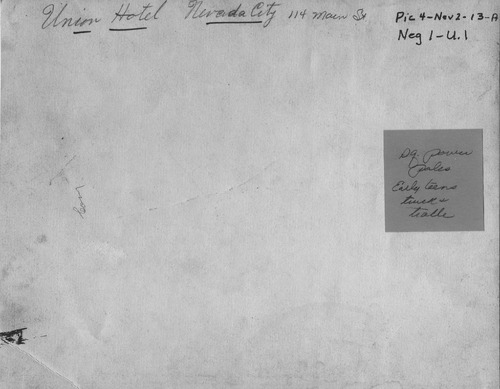 Union Hotel Nevada City 114 Main St
Pic 4-Nev2-13-A
Neg 1-U.1
Sq. power
poles
Early teens
trucks